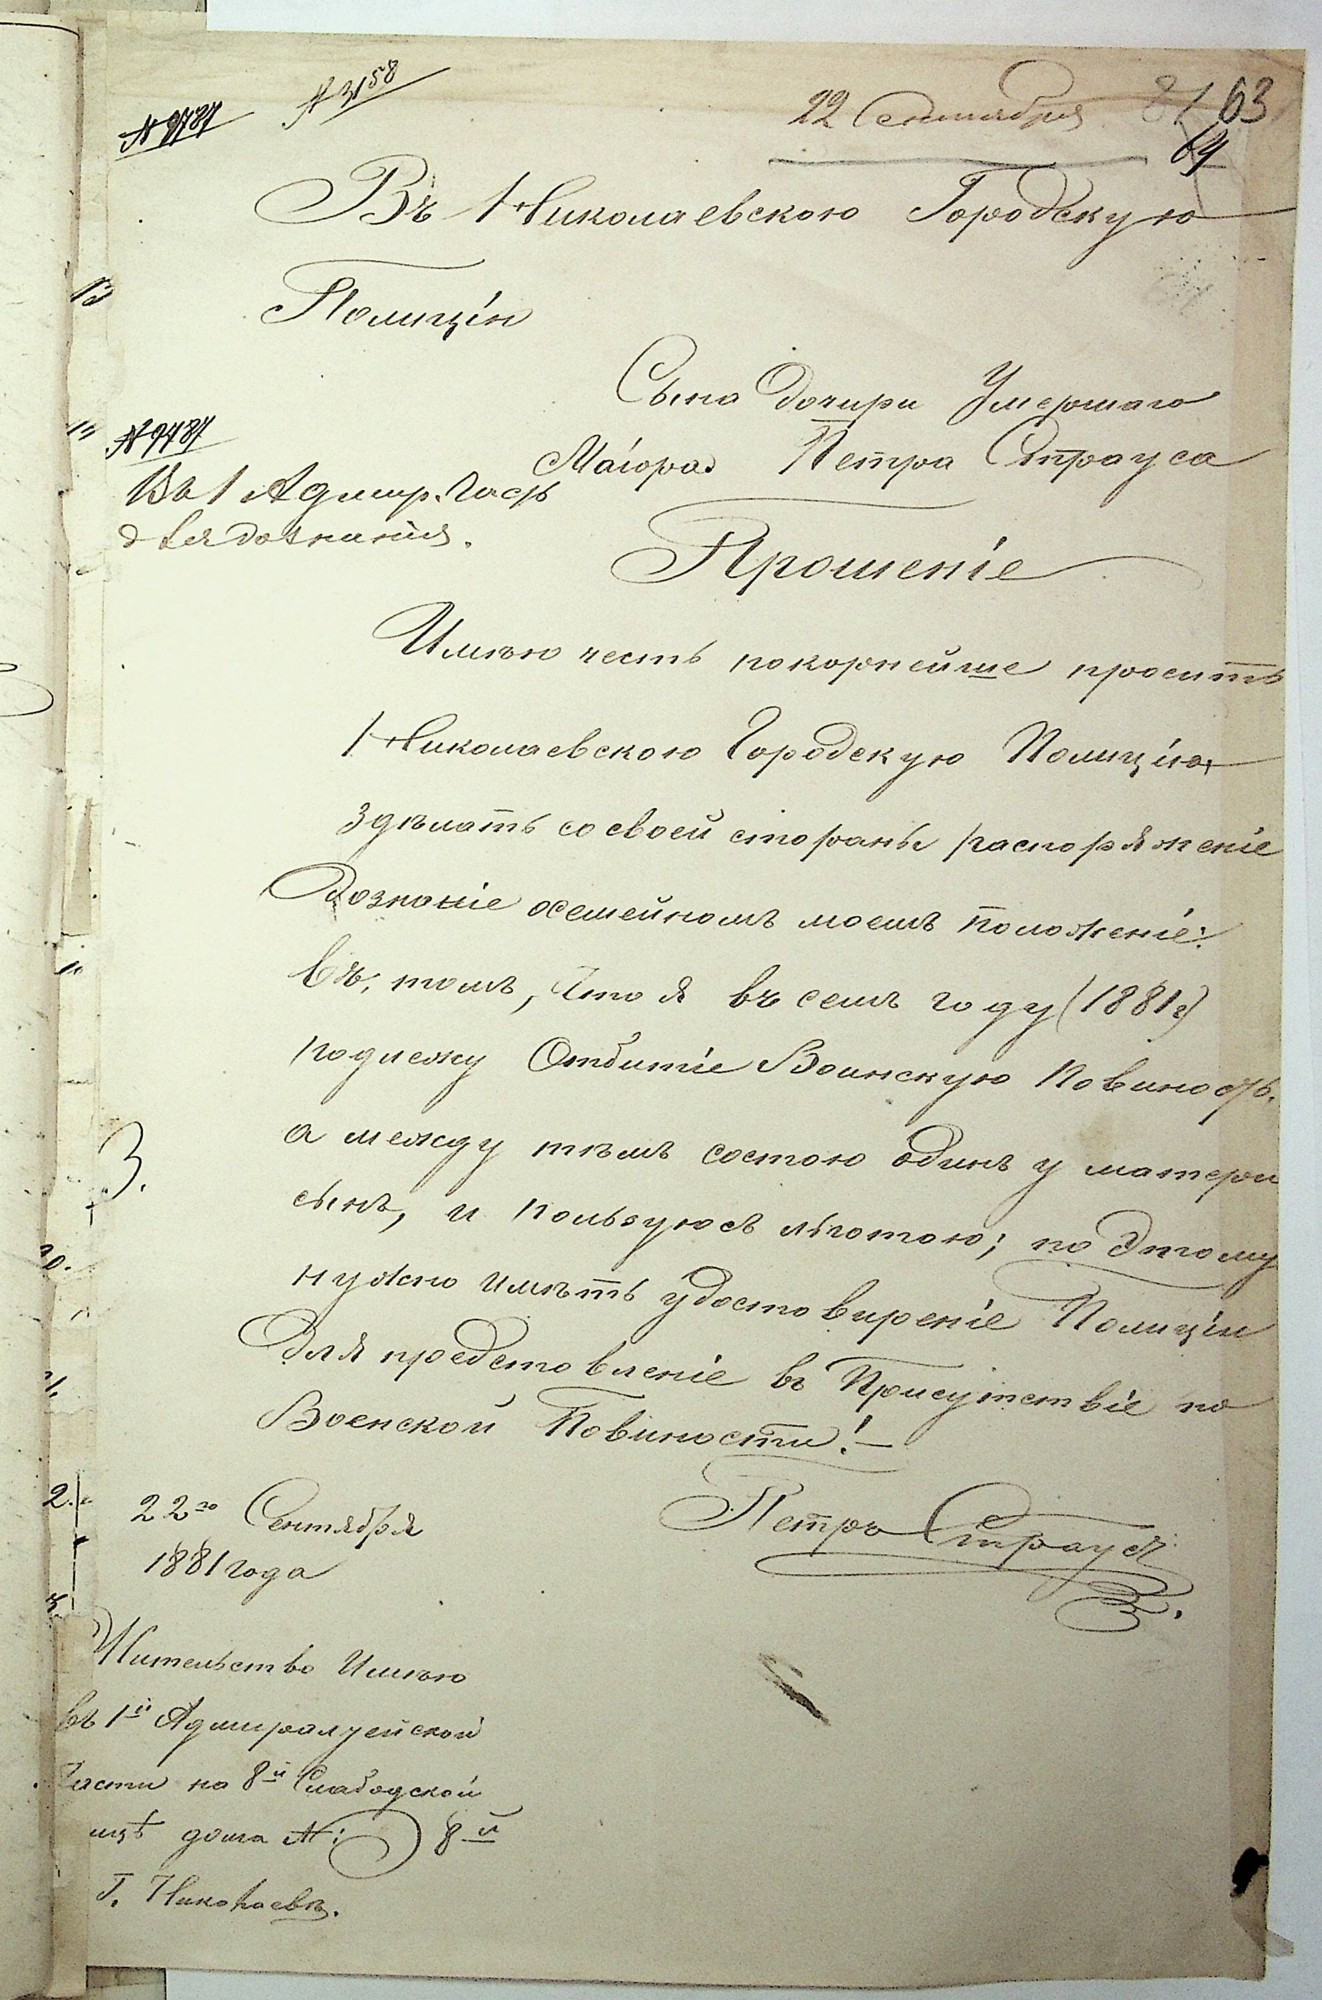 № 3158
22 Сентября 81 63
64
Въ Николаевскою Городскую
Полицію
Сына дочири Умершаго
Маіора Петра Страуса
№ 9787
Въ 1 Адмир. часть
для дознанія.
Прошеніе
Имѣю честь покорнейше просить
Николаевскою Городскую Полицію,
здѣлать со своей стораны распоряженіе
Дознаніе осемейномъ моемъ положеніе:
Въ, томъ, что я въ семъ году (1881г)
подлежу Отбитіе Воинскую Повиность.
а между тѣмъ состою одинъ у матери
сынъ, и пользуюсь льготою; по этому
нужно имѣть удостовиреніе Полиціи
для предстовленіе въ Присутствіе по
Военской Повиности! —
Петръ Страусъ
22го Сентября
1881 года
Жительство Имѣю
въ 1й Адмиралцейской
Части на 8й Слабодской
ицѣ дома №: 8й
Г. Николаевъ.
3.